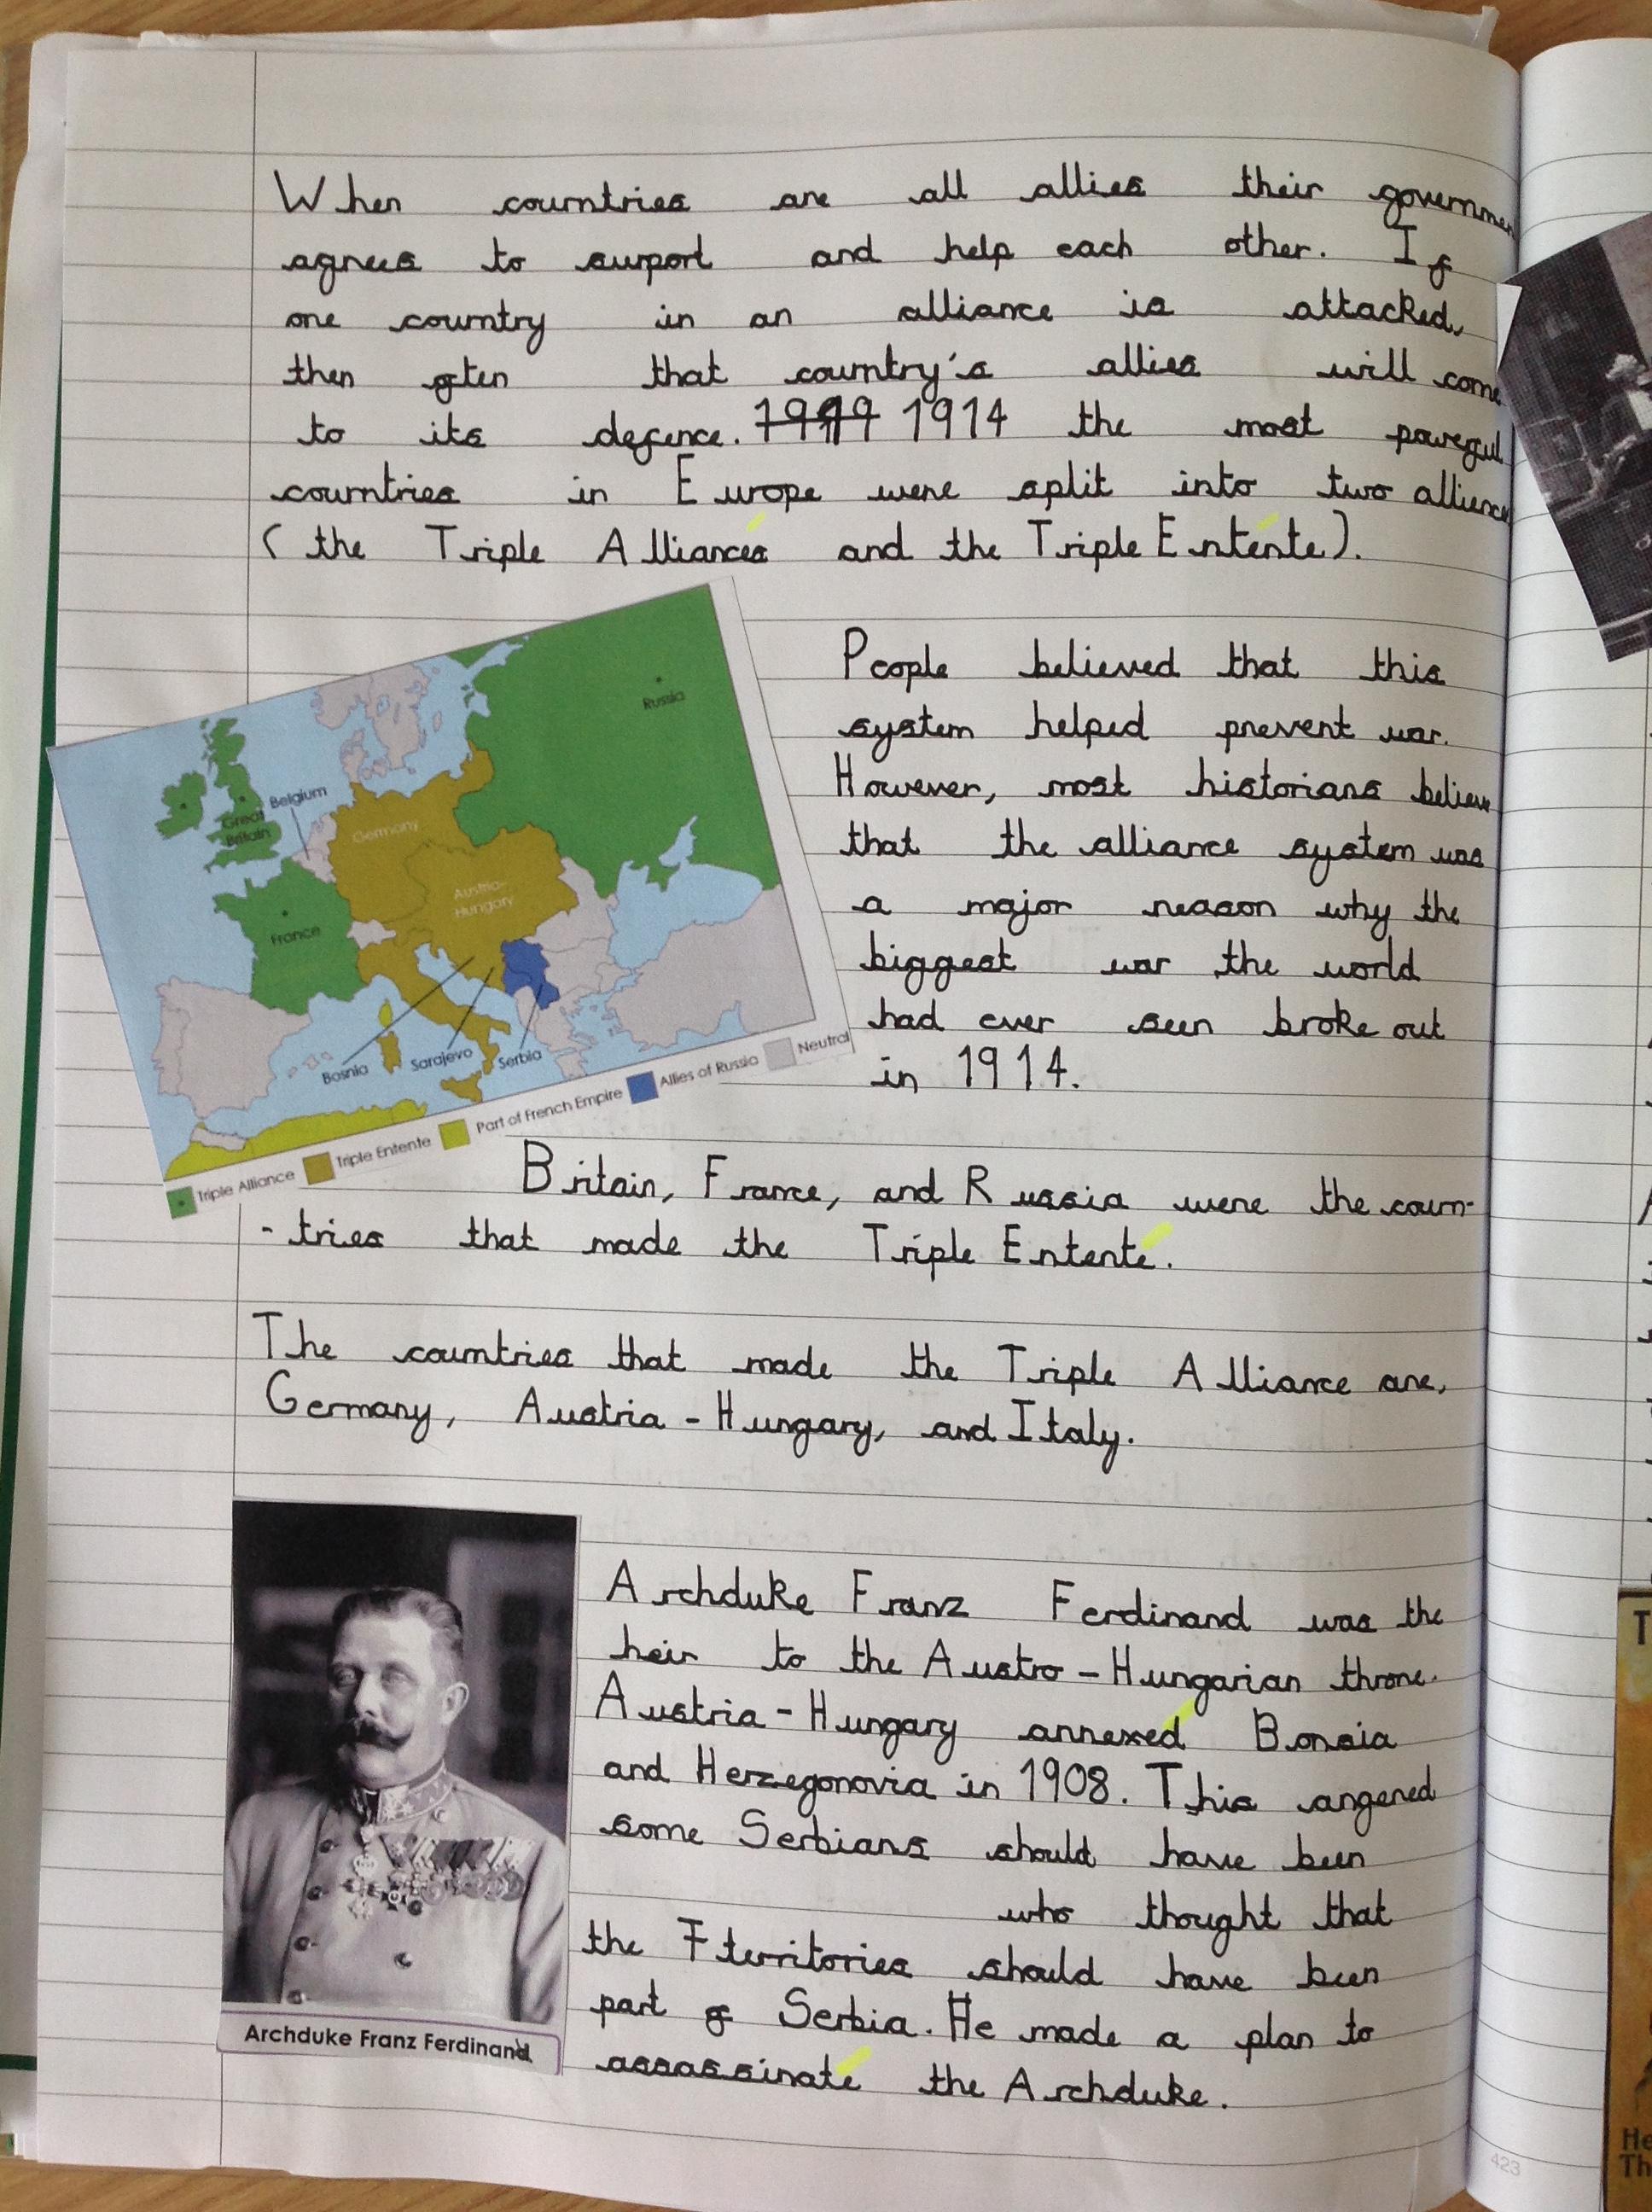 When countries are all allies their governmen
agrees to surport and help each other. If
one country in an alliance is attacked,
then often that country's allies will come
to its defence. 1914 the most powerful
countries in Europe were split into two allience
(the Triple Alliances and the Triple Entente).
Russia
Belgium
Great
Britain
Germany
Austria-
Hungary
France
Bosnia
Sarajevo
Serbia
Triple Alliance
Triple Entente
Part of French Empire
Allies of Russia
Neutral
People believed that this
system helped prevent war.
However, most historians believe
that the alliance system was
a major reason why the
biggest war the world
had ever seen broke out
in 1914.
Britain, France, and Russia were the coun-
-tries that made the Triple Entente.
The countries that made the Triple Alliance are,
Germany, Austria-Hungary, and Italy.
Archduke Franz Ferdinand was the
heir to the Austro-Hungarian throne.
Austria-Hungary annexed Bonsia
and Herzegonovia in 1908. This angered
some Serbians should have been
who thought that
the territories should have been
part of Serbia. He made a plan to
assassinate the Archduke.
Archduke Franz Ferdinand
423
T
He
Th